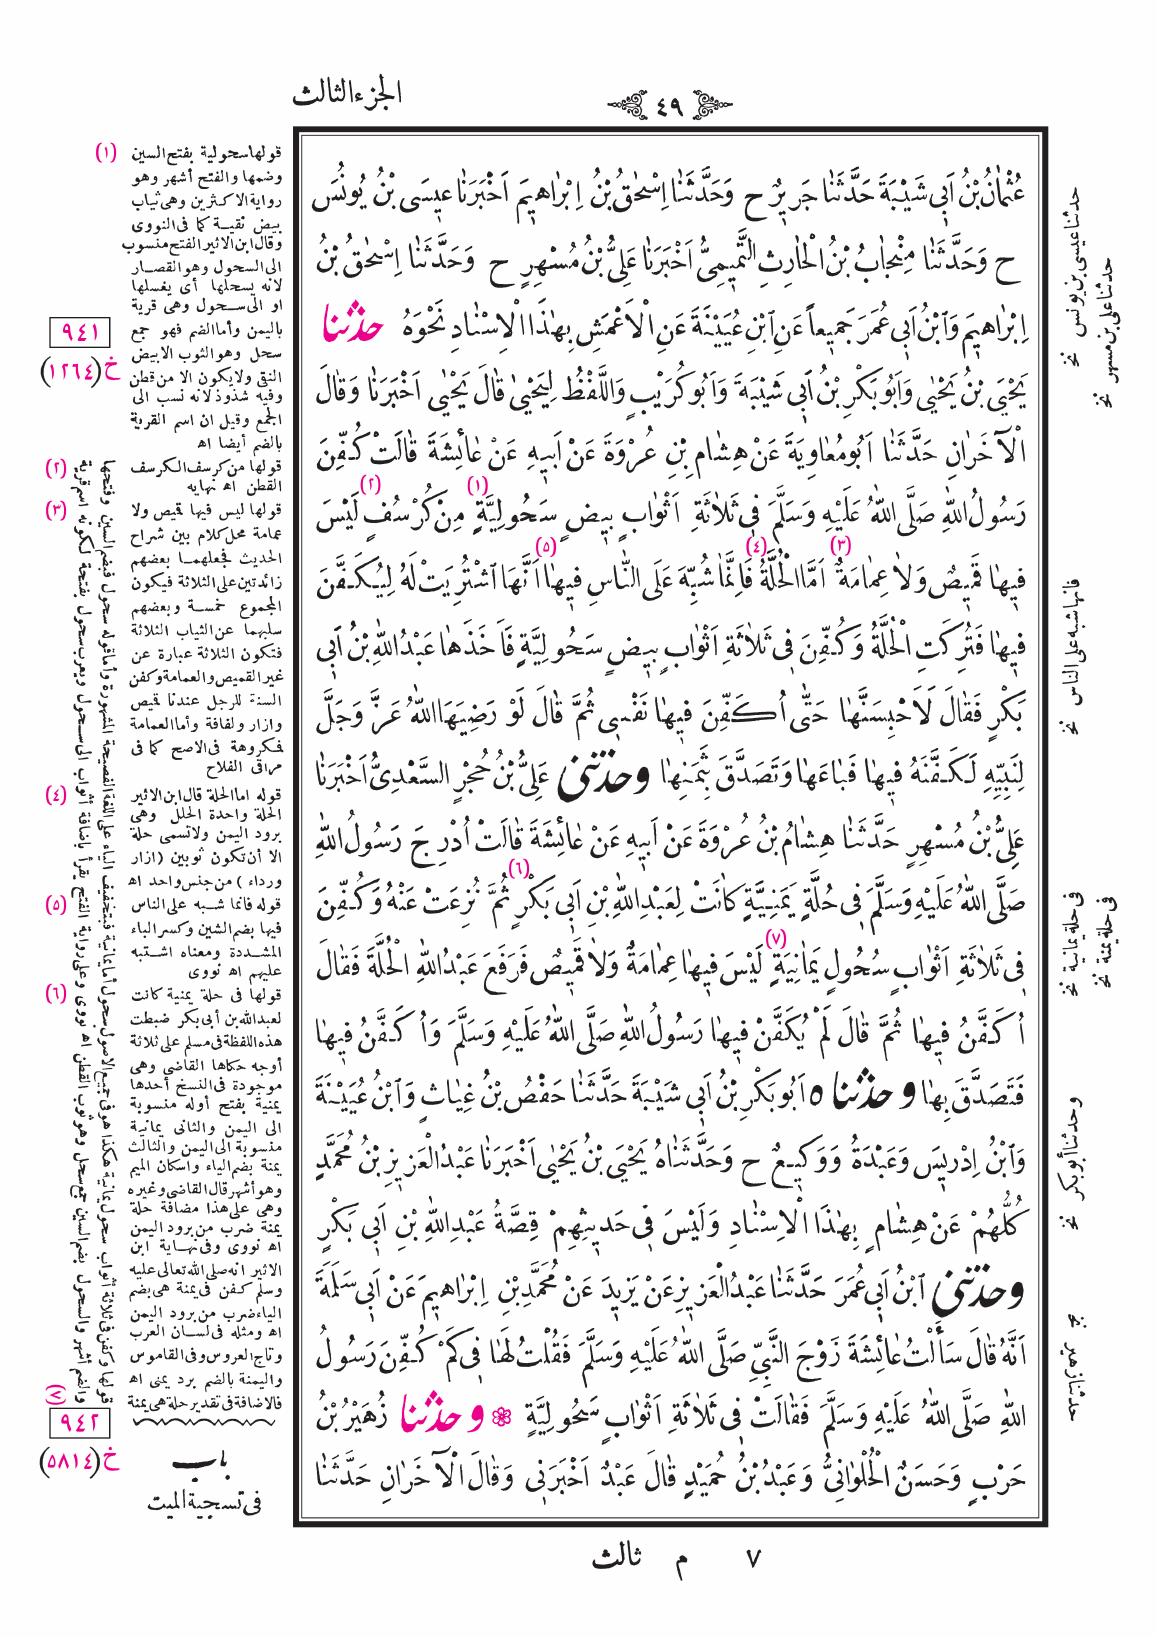 الجزء الثالث
٤٩
عُثْمَانُ بْنُ اَبِي شَيْبَةَ حَدَّثَنَا جَرِيرٌ ح وَحَدَّثَنَا اِسْحٰقُ بْنُ اِبْرَاهِيمَ اَخْبَرَنَا عِيسَى بْنُ يُونُسَ
ح وَحَدَّثَنَا مِنْجَابُ بْنُ الْحَارِثِ التَّمِيمِيُّ اَخْبَرَنَا عَلِيُّ بْنُ مُسْهِرٍ ح وَحَدَّثَنَا اِسْحٰقُ بْنُ
اِبْرَاهِيمَ وَابْنُ اَبِي عُمَرَ جَمِيعاً عَنِ ابْنِ عُيَيْنَةَ عَنِ الْاَعْمَشِ بِهٰذَا الْاِسْنَادِ نَحْوَهُ حَدَّثَنَا
يَحْيَى بْنُ يَحْيٰى وَاَبُو بَكْرِ بْنُ اَبِي شَيْبَةَ وَاَبُو كُرَيْبٍ وَاللَّفْظُ لِيَحْيٰى قَالَ يَحْيٰى اَخْبَرَنَا وَقَالَ
الْآخَرَانِ حَدَّثَنَا اَبُو مُعَاوِيَةَ عَنْ هِشَامِ بْنِ عُرْوَةَ عَنْ اَبِيهِ عَنْ عَائِشَةَ قَالَتْ كُفِّنَ
رَسُولُ اللهِ صَلَّى اللهُ عَلَيْهِ وَسَلَّمَ فِي ثَلَاثَةِ اَثْوَابٍ بِيضٍ سَحُولِيَّةٍ (١) مِنْ كُرْسُفٍ (٢) لَيْسَ
فِيهَا قَمِيصٌ وَلَا عِمَامَةٌ (٣) اَمَّا الْحُلَّةُ (٤) فَاِنَّمَا شُبِّهَ عَلَى النَّاسِ فِيهَا (٥) اَنَّهَا اشْتُرِيَتْ لَهُ لِيُكَفَّنَ
فِيهَا فَتُرِكَتِ الْحُلَّةُ وَكُفِّنَ فِي ثَلَاثَةِ اَثْوَابٍ بِيضٍ سَحُولِيَّةٍ فَاَخَذَهَا عَبْدُ اللهِ بْنُ اَبِي
بَكْرٍ فَقَالَ لَاَحْبِسَنَّهَا حَتّٰى اُكَفِّنَ فِيهَا نَفْسِي ثُمَّ قَالَ لَوْ رَضِيَهَا اللهُ عَزَّ وَجَلَّ
لِنَبِيِّهِ لَكَفَّنَهُ فِيهَا فَبَاعَهَا وَتَصَدَّقَ بِثَمَنِهَا وحَدَّثَنِي عَلِيُّ بْنُ حُجْرٍ السَّعْدِيُّ اَخْبَرَنَا
عَلِيُّ بْنُ مُسْهِرٍ حَدَّثَنَا هِشَامُ بْنُ عُرْوَةَ عَنْ اَبِيهِ عَنْ عَائِشَةَ قَالَتْ اُدْرِجَ رَسُولُ اللهِ
صَلَّى اللهُ عَلَيْهِ وَسَلَّمَ فِي حُلَّةٍ يَمَنِيَّةٍ كَانَتْ لِعَبْدِ اللهِ بْنِ اَبِي بَكْرٍ (٦) ثُمَّ نُزِعَتْ عَنْهُ وَكُفِّنَ
فِي ثَلَاثَةِ اَثْوَابٍ سُحُولٍ يَمَانِيَةٍ (٧) لَيْسَ فِيهَا عِمَامَةٌ وَلَا قَمِيصٌ فَرَفَعَ عَبْدُ اللهِ الْحُلَّةَ فَقَالَ
اُكَفَّنُ فِيهَا ثُمَّ قَالَ لَمْ يُكَفَّنْ فِيهَا رَسُولُ اللهِ صَلَّى اللهُ عَلَيْهِ وَسَلَّمَ وَاُكَفَّنُ فِيهَا
فَتَصَدَّقَ بِهَا وحَدَّثَنَاه اَبُو بَكْرِ بْنُ اَبِي شَيْبَةَ حَدَّثَنَا حَفْصُ بْنُ غِيَاثٍ وَابْنُ عُيَيْنَةَ
وَابْنُ اِدْرِيسَ وَعَبْدَةُ وَوَكِيعٌ ح وَحَدَّثَنَاهُ يَحْيَى بْنُ يَحْيٰى اَخْبَرَنَا عَبْدُ الْعَزِيزِ بْنُ مُحَمَّدٍ
كُلُّهُمْ عَنْ هِشَامٍ بِهٰذَا الْاِسْنَادِ وَلَيْسَ فِي حَدِيثِهِمْ قِصَّةُ عَبْدِ اللهِ بْنِ اَبِي بَكْرٍ
وحَدَّثَنِي ابْنُ اَبِي عُمَرَ حَدَّثَنَا عَبْدُ الْعَزِيزِ عَنْ يَزِيدَ عَنْ مُحَمَّدِ بْنِ اِبْرَاهِيمَ عَنْ اَبِي سَلَمَةَ
اَنَّهُ قَالَ سَأَلْتُ عَائِشَةَ زَوْجَ النَّبِيِّ صَلَّى اللهُ عَلَيْهِ وَسَلَّمَ فَقُلْتُ لَهَا فِي كَمْ كُفِّنَ رَسُولُ
اللهِ صَلَّى اللهُ عَلَيْهِ وَسَلَّمَ فَقَالَتْ فِي ثَلَاثَةِ اَثْوَابٍ سَحُولِيَّةٍ وحَدَّثَنَا زُهَيْرُ بْنُ
حَرْبٍ وَحَسَنٌ الْحُلْوَانِيُّ وَعَبْدُ بْنُ حُمَيْدٍ قَالَ عَبْدٌ اَخْبَرَنِي وَقَالَ الْآخَرَانِ حَدَّثَنَا
٧ م ثالث
حدثنا عيسى بن يونس نخ
حدثنا على بن مسهر نخ
فانها شبه على الناس نخ
فى حلة يمانية نخ
فى حلة يمنة نخ
وحدثنا أبو بكر نخ
حدثنا زهير نخ
(١) قولها سحولية بفتح السين
وضمها والفتح أشهر وهو
رواية الاكثرين وهى ثياب
بيض نقية كما فى النووى
وقال ابن الاثير الفتح منسوب
الى السحول وهو القصار
لانه يسحلها أى يغسلها
او الى سحول وهى قرية
باليمن وأما الضم فهو جمع
سحل وهو الثوب الابيض
النقى ولا يكون الا من قطن
وفيه شذوذ لانه نسب الى
الجمع وقيل ان اسم القرية
بالضم أيضا اه
(٢) قولها من كرسف الكرسف
القطن اه نهايه
(٣) قولها ليس فيها قميص ولا
عمامة محل كلام بين شراح
الحديث فجعلهما بعضهم
زائدتين على الثلاثة فيكون
المجموع خمسة وبعضهم
سلبهما عن الثياب الثلاثة
فتكون الثلاثة عبارة عن
غير القميص والعمامة وكفن
السنة للرجل عندنا قميص
وازار ولفافة وأما العمامة
فمكروهة فى الاصح كما فى
مراقى الفلاح
(٤) قوله اما الحلة قال ابن الاثير
الحلة واحدة الحلل وهى
برود اليمن ولا تسمى حلة
الا أن تكون ثوبين (ازار
ورداء) من جنس واحد اه
(٥) قوله فانما شبه على الناس
فيها بضم الشين وكسر الباء
المشددة ومعناه اشتبه
عليهم اه نووى
(٦) قولها فى حلة يمنية كانت
لعبدالله بن أبى بكر ضبطت
هذه اللفظة فى مسلم على ثلاثة
أوجه حكاها القاضى وهى
موجودة فى النسخ أحدها
يمنية بفتح أوله منسوبة
الى اليمن والثانى يمانية
منسوبة الى اليمن والثالث
يمنة بضم الياء واسكان الميم
وهو أشهر قال القاضى وغيره
وهى على هذا مضافة حلة
يمنة ضرب من برود اليمن
اه نووى وفى نهاية ابن
الاثير انه صلى الله تعالى عليه
وسلم كفن فى يمنة هى بضم
الياء ضرب من برود اليمن
اه ومثله فى لسان العرب
وتاج العروس وفى القاموس
واليمنة بالضم برد يمنى اه
فالاضافة فى تقدير حلة هى يمنة
(٧) قولها وكفن فى ثلاثة أثواب سحول يمانية هكذا هو فى جميع الاصول سحول أما يمانية فبتخفيف الياء على اللغة الفصيحة المشهورة وأما قوله سحول فبضم السين وفتحها
والضم أشهر والسحول بضم السين جمع سحل وهو ثوب القطن اه نووى وعلى رواية الفتح يقرأ باضافة أثواب الى سحول ويعرب سحول بفتحة لكونه اسم قرية
٩٤١
خ (١٢٦٤)
٩٤٢
خ (٥٨١٤)
باب
فى تسجية الميت